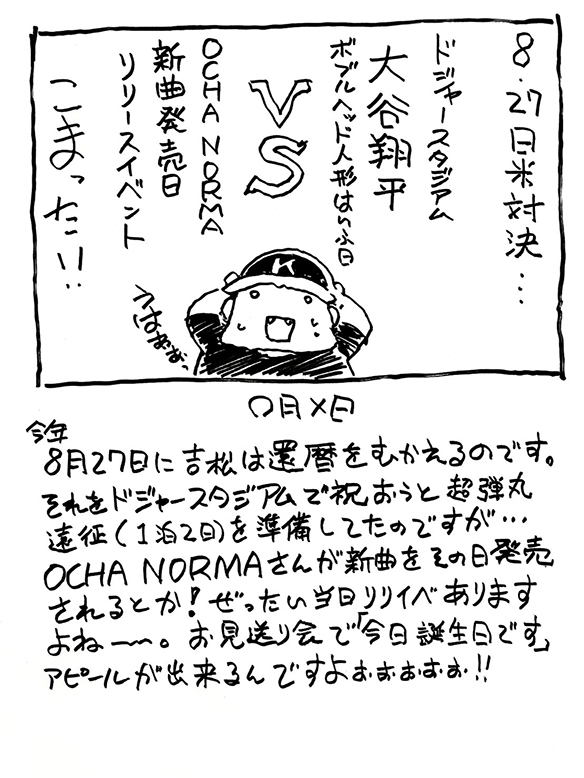 8.27日米対決…
ドジャースタジアム
大谷翔平
ボブルヘッド人形はいふ日
VS
OCHA NORMA
新曲発売日
リリースイベント
こまった!!
K
〇月×日
今年
8月27日に吉松は還暦をむかえるのです。
それをドジャースタジアムで祝おうと超弾丸
遠征(1泊2日)を準備してたのですが…
OCHA NORMAさんが新曲をその日発売
されるとか!ぜったい当日リリイベあります
よねー〜。お見送り会で「今日誕生日です」
アピールが出来るんですよぉぉぉぉぉ!!